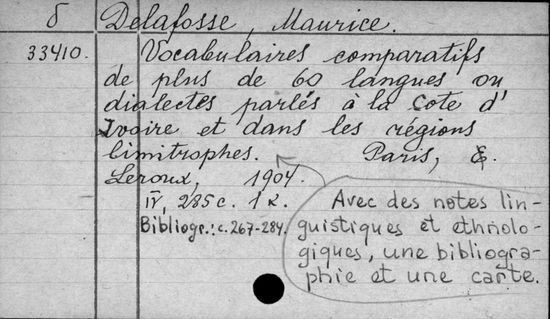 δ Delafosse, Maurice.
33410. Vocabulaires comparatifs
de plus de 60 langues ou
dialectes parlés à la Cote d'
Ivoire et dans les régions
limitrophes. Paris, E.
Leroux, 1904.
IV, 285 c. 1 к.
Bibliogr.: c. 267-284.
Avec des notes lin-
guistiques et ethnolo-
giques, une bibliogra-
phie et une carte.